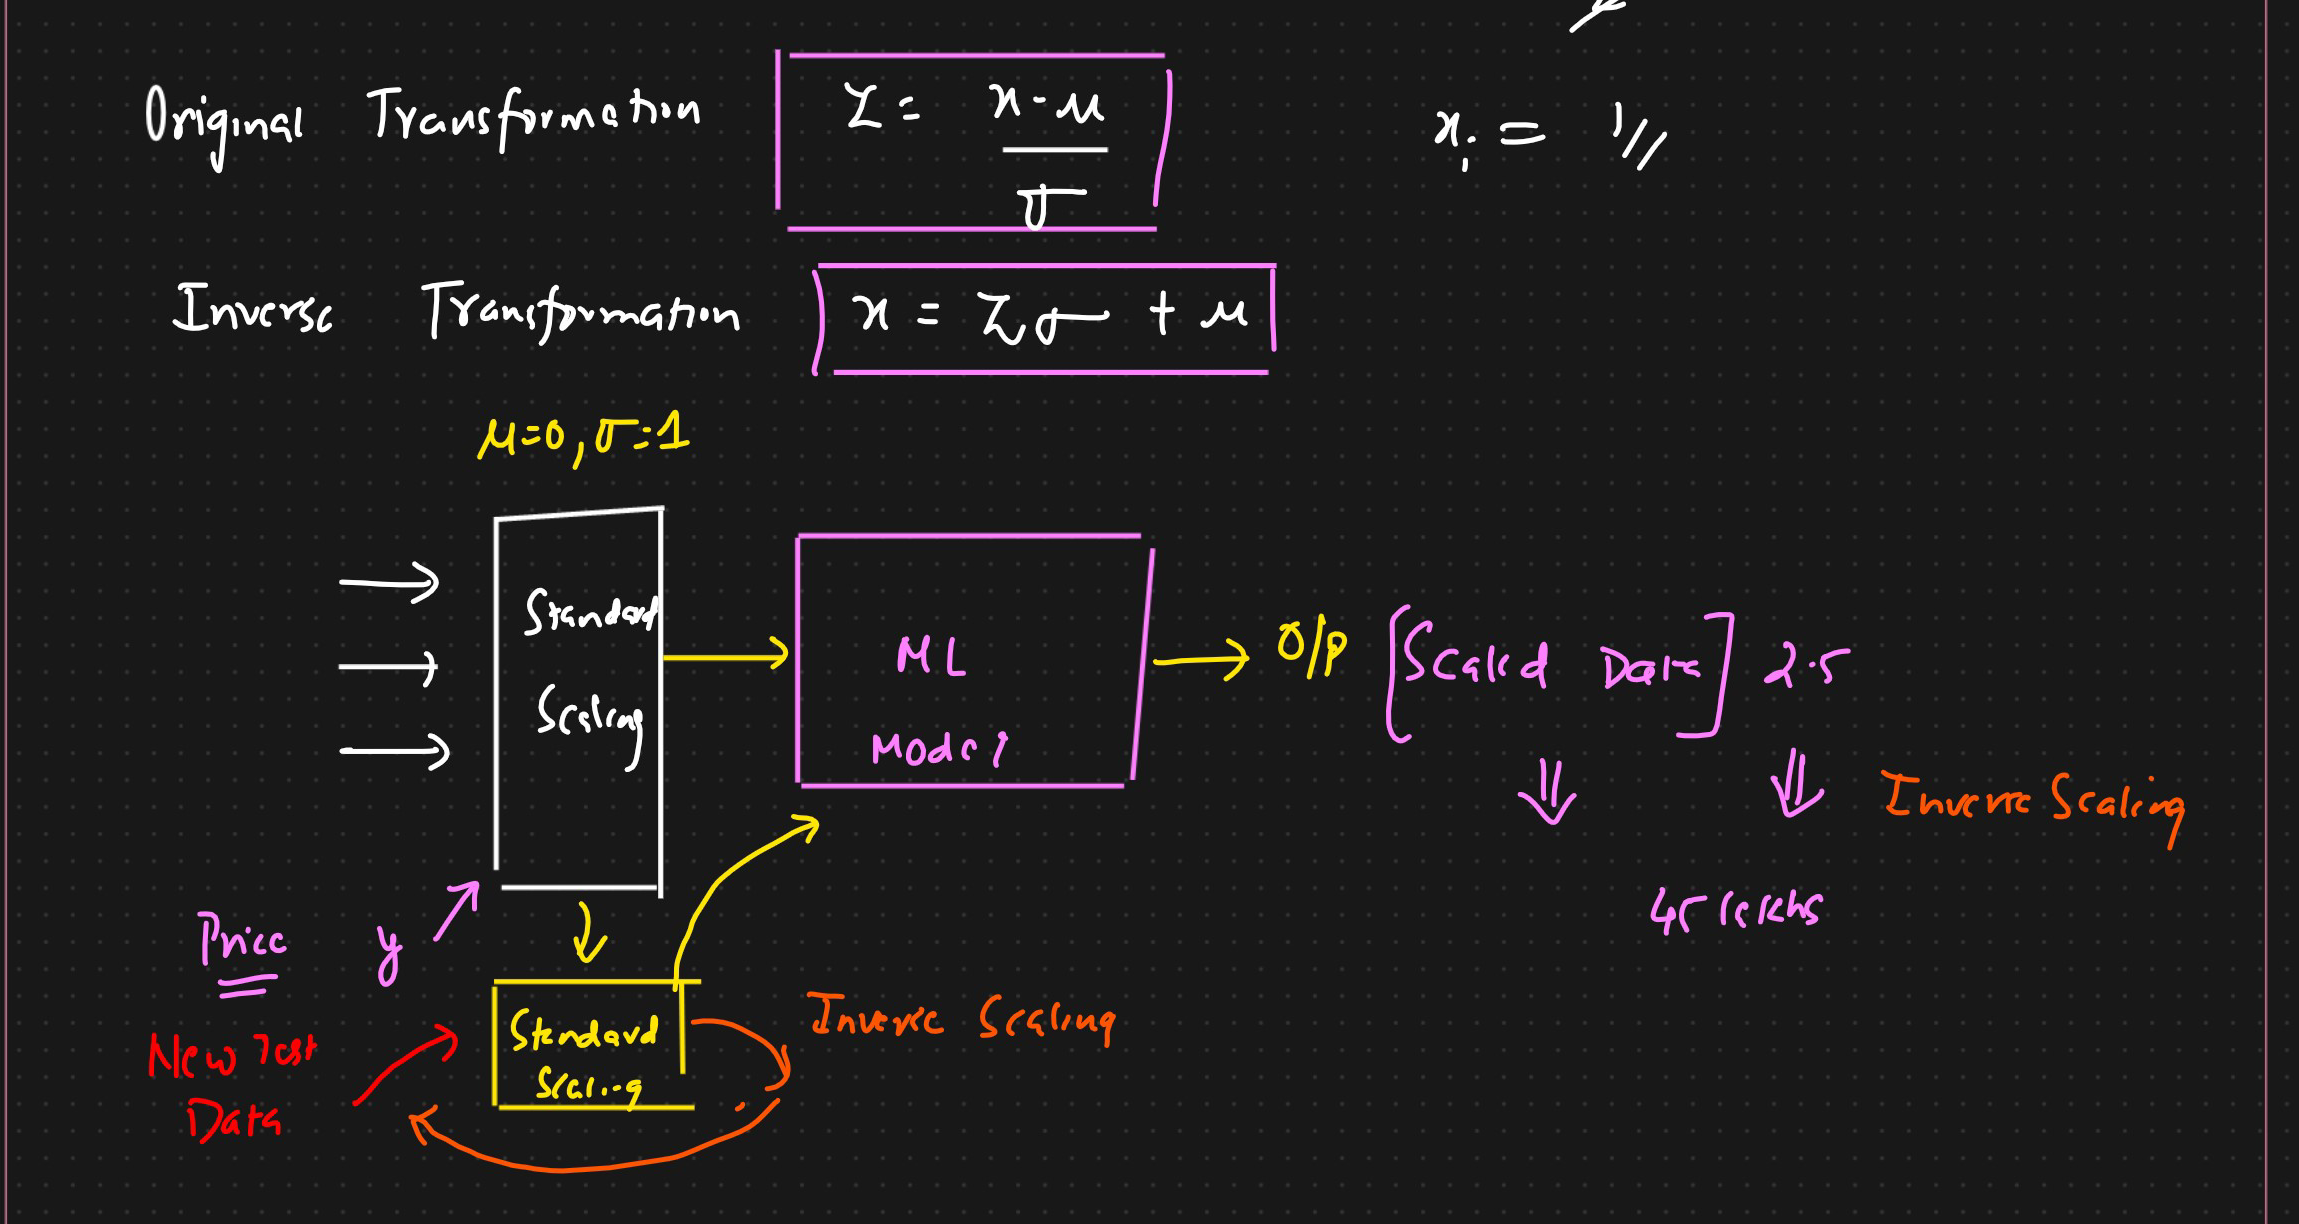 Original Transformation
Z = x-μ / σ
xi = 1//
Inverse Transformation
x = Zσ + μ
μ=0, σ=1
Standard Scaling
ML Model
O/P [Scaled Data] 2.5
Inverse Scaling
45 lakhs
Price y
Standard Scaling
Inverse Scaling
New Test Data